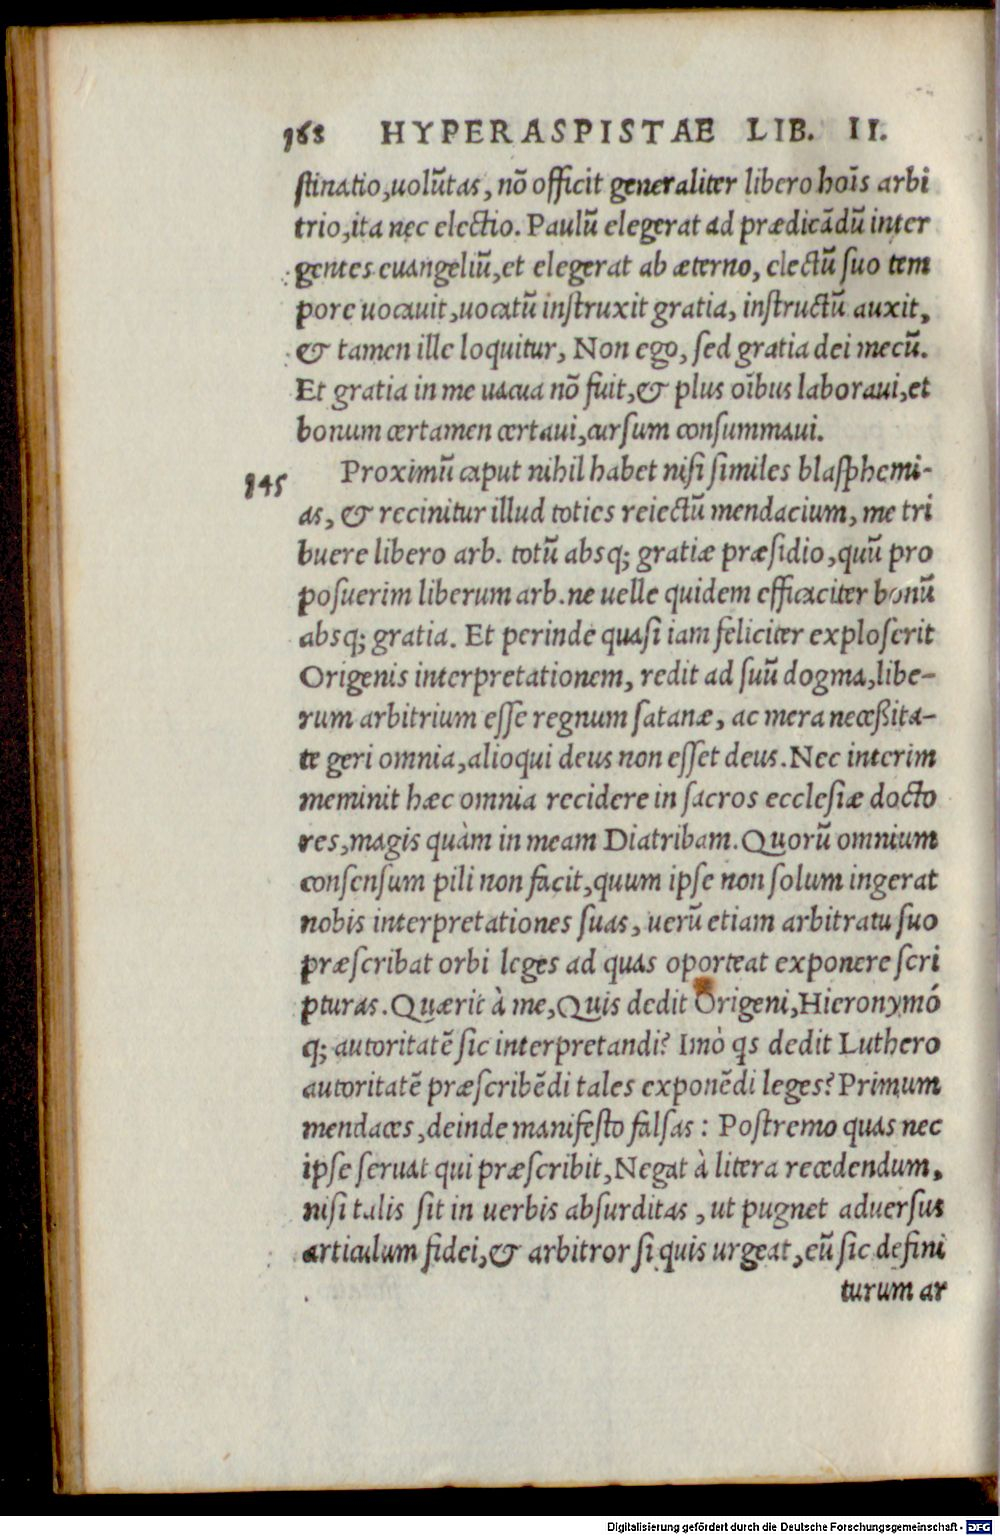 168 HYPERASPISTAE LIB. II.
stinatio,uolũtas, nõ officit generaliter libero hoĩs arbi
trio,ita nec electio. Paulũ elegerat ad prædicãdũ inter
gentes euangeliũ,et elegerat ab æterno, electũ suo tem
pore uocauit,uocatũ instruxit gratia, instructũ auxit,
& tamen ille loquitur, Non ego, sed gratia dei mecũ.
Et gratia in me uacua nõ fuit,& plus oĩbus laboraui,et
bonum certamen certaui,cursum consummaui.
145 Proximũ caput nihil habet nisi similes blasphemi-
as, & recinitur illud toties reiectũ mendacium, me tri
buere libero arb. totũ absq; gratiæ præsidio,quũ pro
posuerim liberum arb.ne uelle quidem efficaciter bonũ
absq; gratia. Et perinde quasi iam feliciter exploserit
Origenis interpretationem, redit ad suũ dogma,libe-
rum arbitrium esse regnum satanæ, ac mera neceßita-
te geri omnia,alioqui deus non esset deus. Nec interim
meminit hæc omnia recidere in sacros ecclesiæ docto
res,magis quàm in meam Diatribam. Quorũ omnium
consensum pili non facit,quum ipse non solum ingerat
nobis interpretationes suas, uerũ etiam arbitratu suo
præscribat orbi leges ad quas oporteat exponere scri
pturas. Quærit à me,Quis dedit Origeni,Hieronymó
q; autoritatẽ sic interpretandi? Imò qs dedit Luthero
autoritatẽ præscribẽdi tales exponẽdi leges? Primum
mendaces,deinde manifesto falsas: Postremo quas nec
ipse seruat qui præscribit, Negat à litera recedendum,
nisi talis sit in uerbis absurditas, ut pugnet aduersus
articulum fidei,& arbitror si quis urgeat,eũ sic defini
turum ar
Digitalisierung gefördert durch die Deutsche Forschungsgemeinschaft - DFG